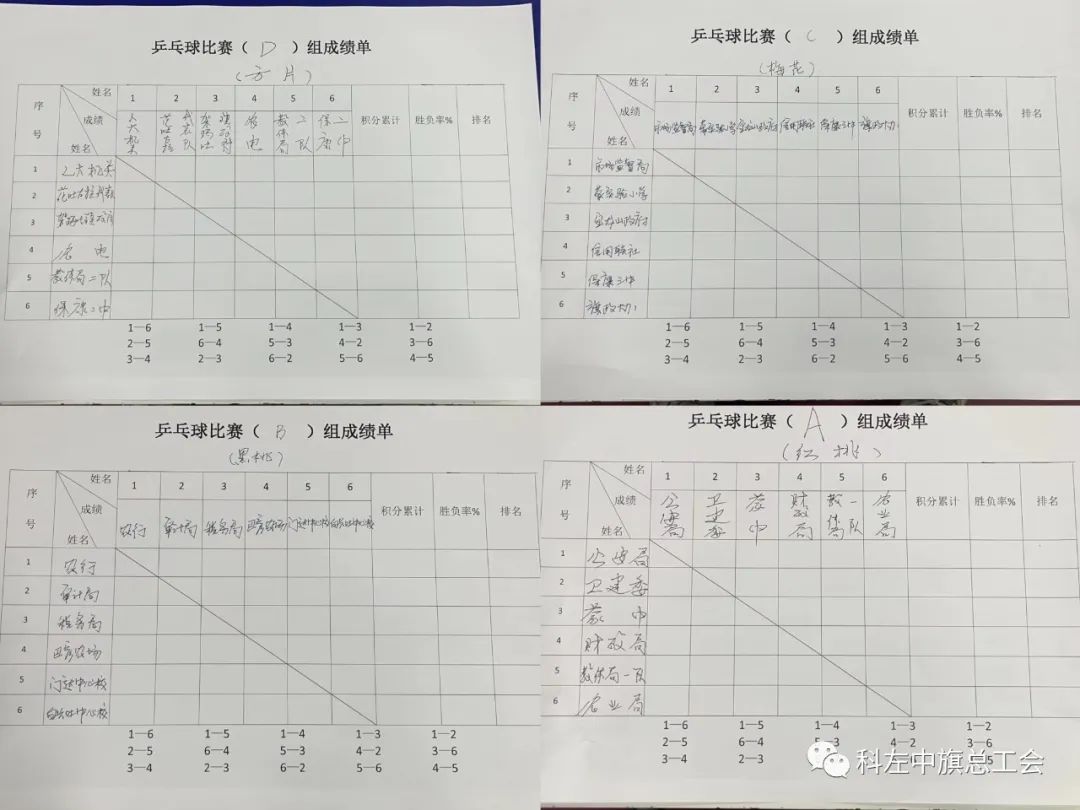 乒乓球比赛（ D ）组成绩单
（方片）
序号 姓名 成绩 姓名 1 2 3 4 5 6 积分累计 胜负率% 排名
人大机关 农电 教体局二队 保二康中
1 人大机关
2
3
4 农电
5 教体局二队
6 保康二中
1—6 1—5 1—4 1—3 1—2
2—5 6—4 5—3 4—2 3—6
3—4 2—3 6—2 5—6 4—5
乒乓球比赛（ C ）组成绩单
（梅花）
序号 姓名 成绩 姓名 1 2 3 4 5 6 积分累计 胜负率% 排名
市场监督局 蒙实验小学 信用联社 保康三中
1 市场监督局
2 蒙实验小学
3
4 信用联社
5 保康三中
6
1—6 1—5 1—4 1—3 1—2
2—5 6—4 5—3 4—2 3—6
3—4 2—3 6—2 5—6 4—5
乒乓球比赛（ B ）组成绩单
（黑桃）
序号 姓名 成绩 姓名 1 2 3 4 5 6 积分累计 胜负率% 排名
农行 审计局 税务局 门达中心校
1 农行
2 审计局
3 税务局
4
5 门达中心校
6
1—6 1—5 1—4 1—3 1—2
2—5 6—4 5—3 4—2 3—6
3—4 2—3 6—2 5—6 4—5
乒乓球比赛（ A ）组成绩单
（红桃）
序号 姓名 成绩 姓名 1 2 3 4 5 6 积分累计 胜负率% 排名
公安局 卫建委 蒙中 财政局 教体局一队 农业局
1 公安局
2 卫建委
3 蒙中
4 财政局
5 教体局一队
6 农业局
1—6 1—5 1—4 1—3 1—2
2—5 6—4 5—3 4—2 3—6
3—4 2—3
科左中旗总工会